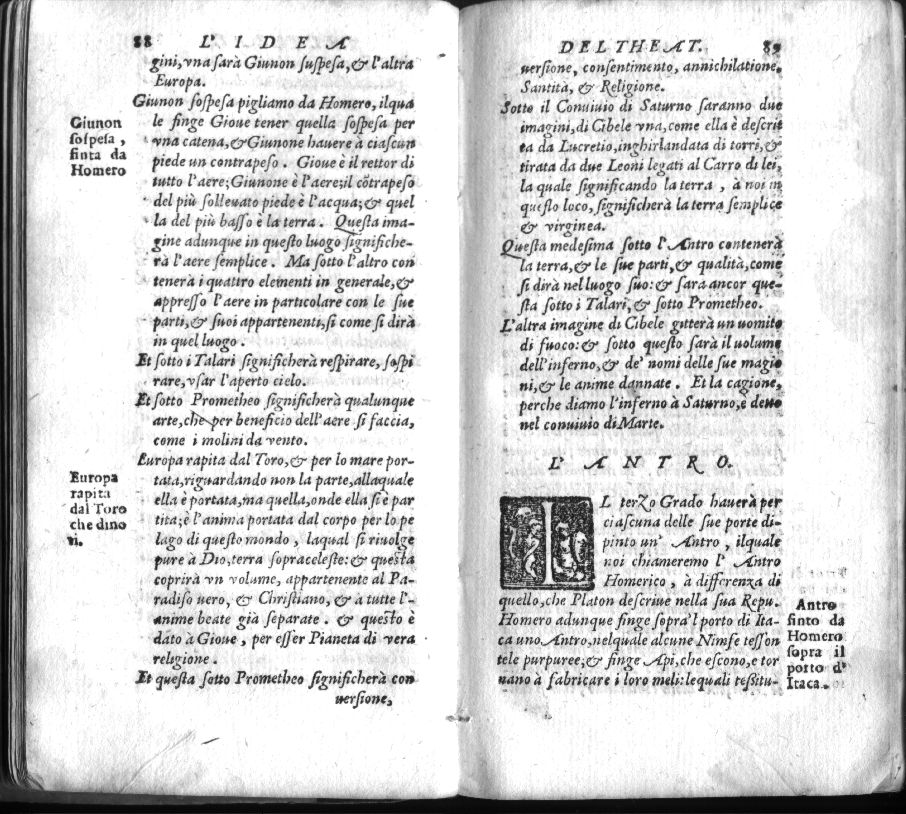 88 L'IDEA
gini,vna sarà Giunon suspesa,& l'altra
Europa.
Giunon sospesa pigliamo da Homero, ilqua
le finge Gioue tener quella sospesa per
vna catena,& Giunone hauere à ciascun
piede un contrapeso. Gioue è il rettor di
tutto l'aere;Giunone è l'aere;il cōtrapeso
del più solleuato piede è l'acqua;& quel
la del più basso è la terra. Questa ima-
gine adunque in questo luogo significhe-
rà l'aere semplice. Ma sotto l'altro con
tenerà i quattro elementi in generale,&
appresso l'aere in particolare con le sue
parti,& suoi appartenenti,si come si dirà
in quel luogo.
Et sotto i Talari significherà respirare, sospi
rare,vsar l'aperto cielo.
Et sotto Prometheo significherà qualunque
arte,che per beneficio dell'aere si faccia,
come i molini da vento.
Europa rapita dal Toro,& per lo mare por-
tata,riguardando non la parte,allaquale
ella è portata,ma quella,onde ella si è par
tita;è l'anima portata dal corpo per lo pe
lago di questo mondo, laqual si riuolge
pure à Dio,terra sopraceleste:& questa
coprirà vn volume, appartenente al Pa-
radiso uero, & Christiano, & a tutte l'-
anime beate già separate. & questo è
dato à Gioue, per esser Pianeta di vera
religione.
Et questa sotto Prometheo significherà con
uersione,
Giunon
sospesa,
finta da
Homero
Europa
rapita
dal Toro
che dino
ti.
DEL THEAT. 89
uersione, consentimento, annichilatione,
Santità, & Religione.
Sotto il Conuiuio di Saturno saranno due
imagini,di Cibele vna,come ella è descrit
ta da Lucretio,inghirlandata di torri,&
tirata da due Leoni legati al Carro di lei,
la quale significando la terra, à noi in
questo loco,significherà la terra semplice
& virginea.
Questa medesima sotto l'Antro contenerà
la terra,& le sue parti,& qualità,come
si dirà nel luogo suo:& sarà ancor que-
sta sotto i Talari,& sotto Prometheo.
L'altra imagine di Cibele gitterà un uomito
di fuoco:& sotto questo sarà il uolume
dell'inferno,& de' nomi delle sue magio
ni,& le anime dannate. Et la cagione,
perche diamo l'inferno à Saturno,è detto
nel conuiuio di Marte.
L'ANTRO.
IL terzo Grado hauerà per
ciascuna delle sue porte di-
pinto un' Antro, ilquale
noi chiameremo l'Antro
Homerico, à differenza di
quello,che Platon descriue nella sua Repu.
Homero adunque finge sopra'l porto di Ita-
ca uno Antro,nelquale alcune Nimfe tesson
tele purpuree;& finge Api,che escono,e tor
nano à fabricare i loro meli:lequali tessitu-
Antro
finto da
Homero
sopra il
porto d'
Itaca.